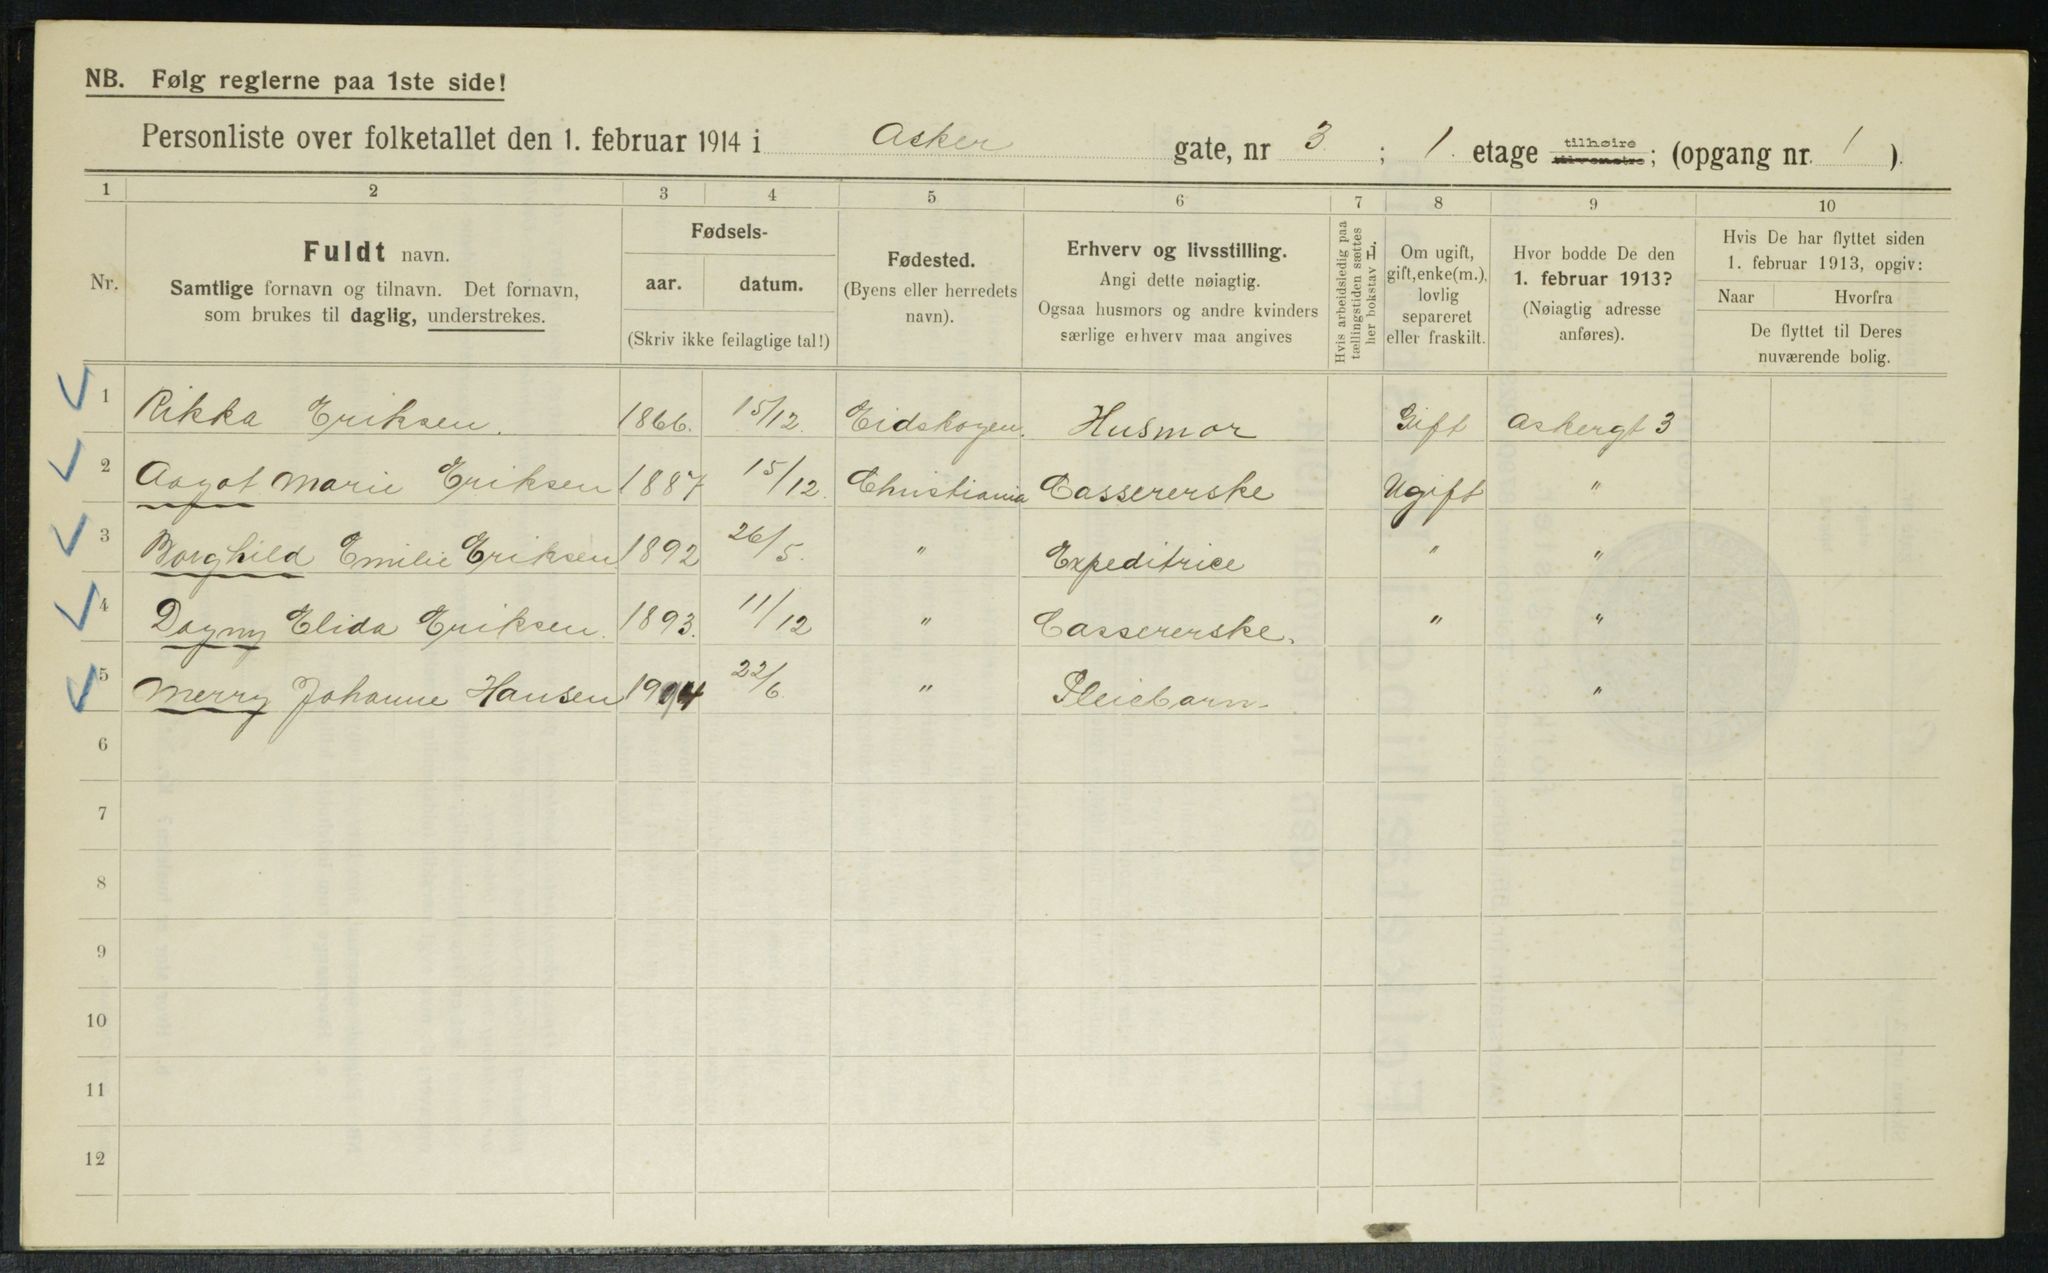 NB. Følg reglerne paa 1ste side!
Personliste over folketallet den 1. februar 1914 i Asker gate, nr 3 ; 1. etage tilhøire tilvenstre; (opgang nr. 1 ).
1 2 3 4 5 6 7 8 9 10
Nr.
Fuldt navn.
Samtlige fornavn og tilnavn. Det fornavn,
som brukes til daglig, understrekes.
Fødsels-
aar. datum.
(Skriv ikke feilagtige tal!)
Fødested.
(Byens eller herredets
navn).
Erhverv og livsstilling.
Angi dette nøiagtig.
Ogsaa husmors og andre kvinders
særlige erhverv maa angives
Hvis arbeidsledig paa
tællingstiden sættes
her bokstav L.
Om ugift,
gift, enke(m.),
lovlig
separeret
eller fraskilt.
Hvor bodde De den
1. februar 1913?
(Nøiagtig adresse
anføres).
Hvis De har flyttet siden
1. februar 1913, opgiv:
Naar Hvorfra
De flyttet til Deres
nuværende bolig.
1 Rikka Eriksen. 1866. 15/12. Eidskogen. Husmor Gift Askergt 3
2 Aagot Marie Eriksen 1887 15/12. Christiania Cassererske Ugift "
3 Borghild Emilie Eriksen 1892 26/5. " Expeditrice " "
4 Dagny Elida Eriksen. 1893. 11/12 " Cassererske. " "
5 Merry Johanne Hansen 1904 22/6 " Pleiebarn. "
6
7
8
9
10
11
12